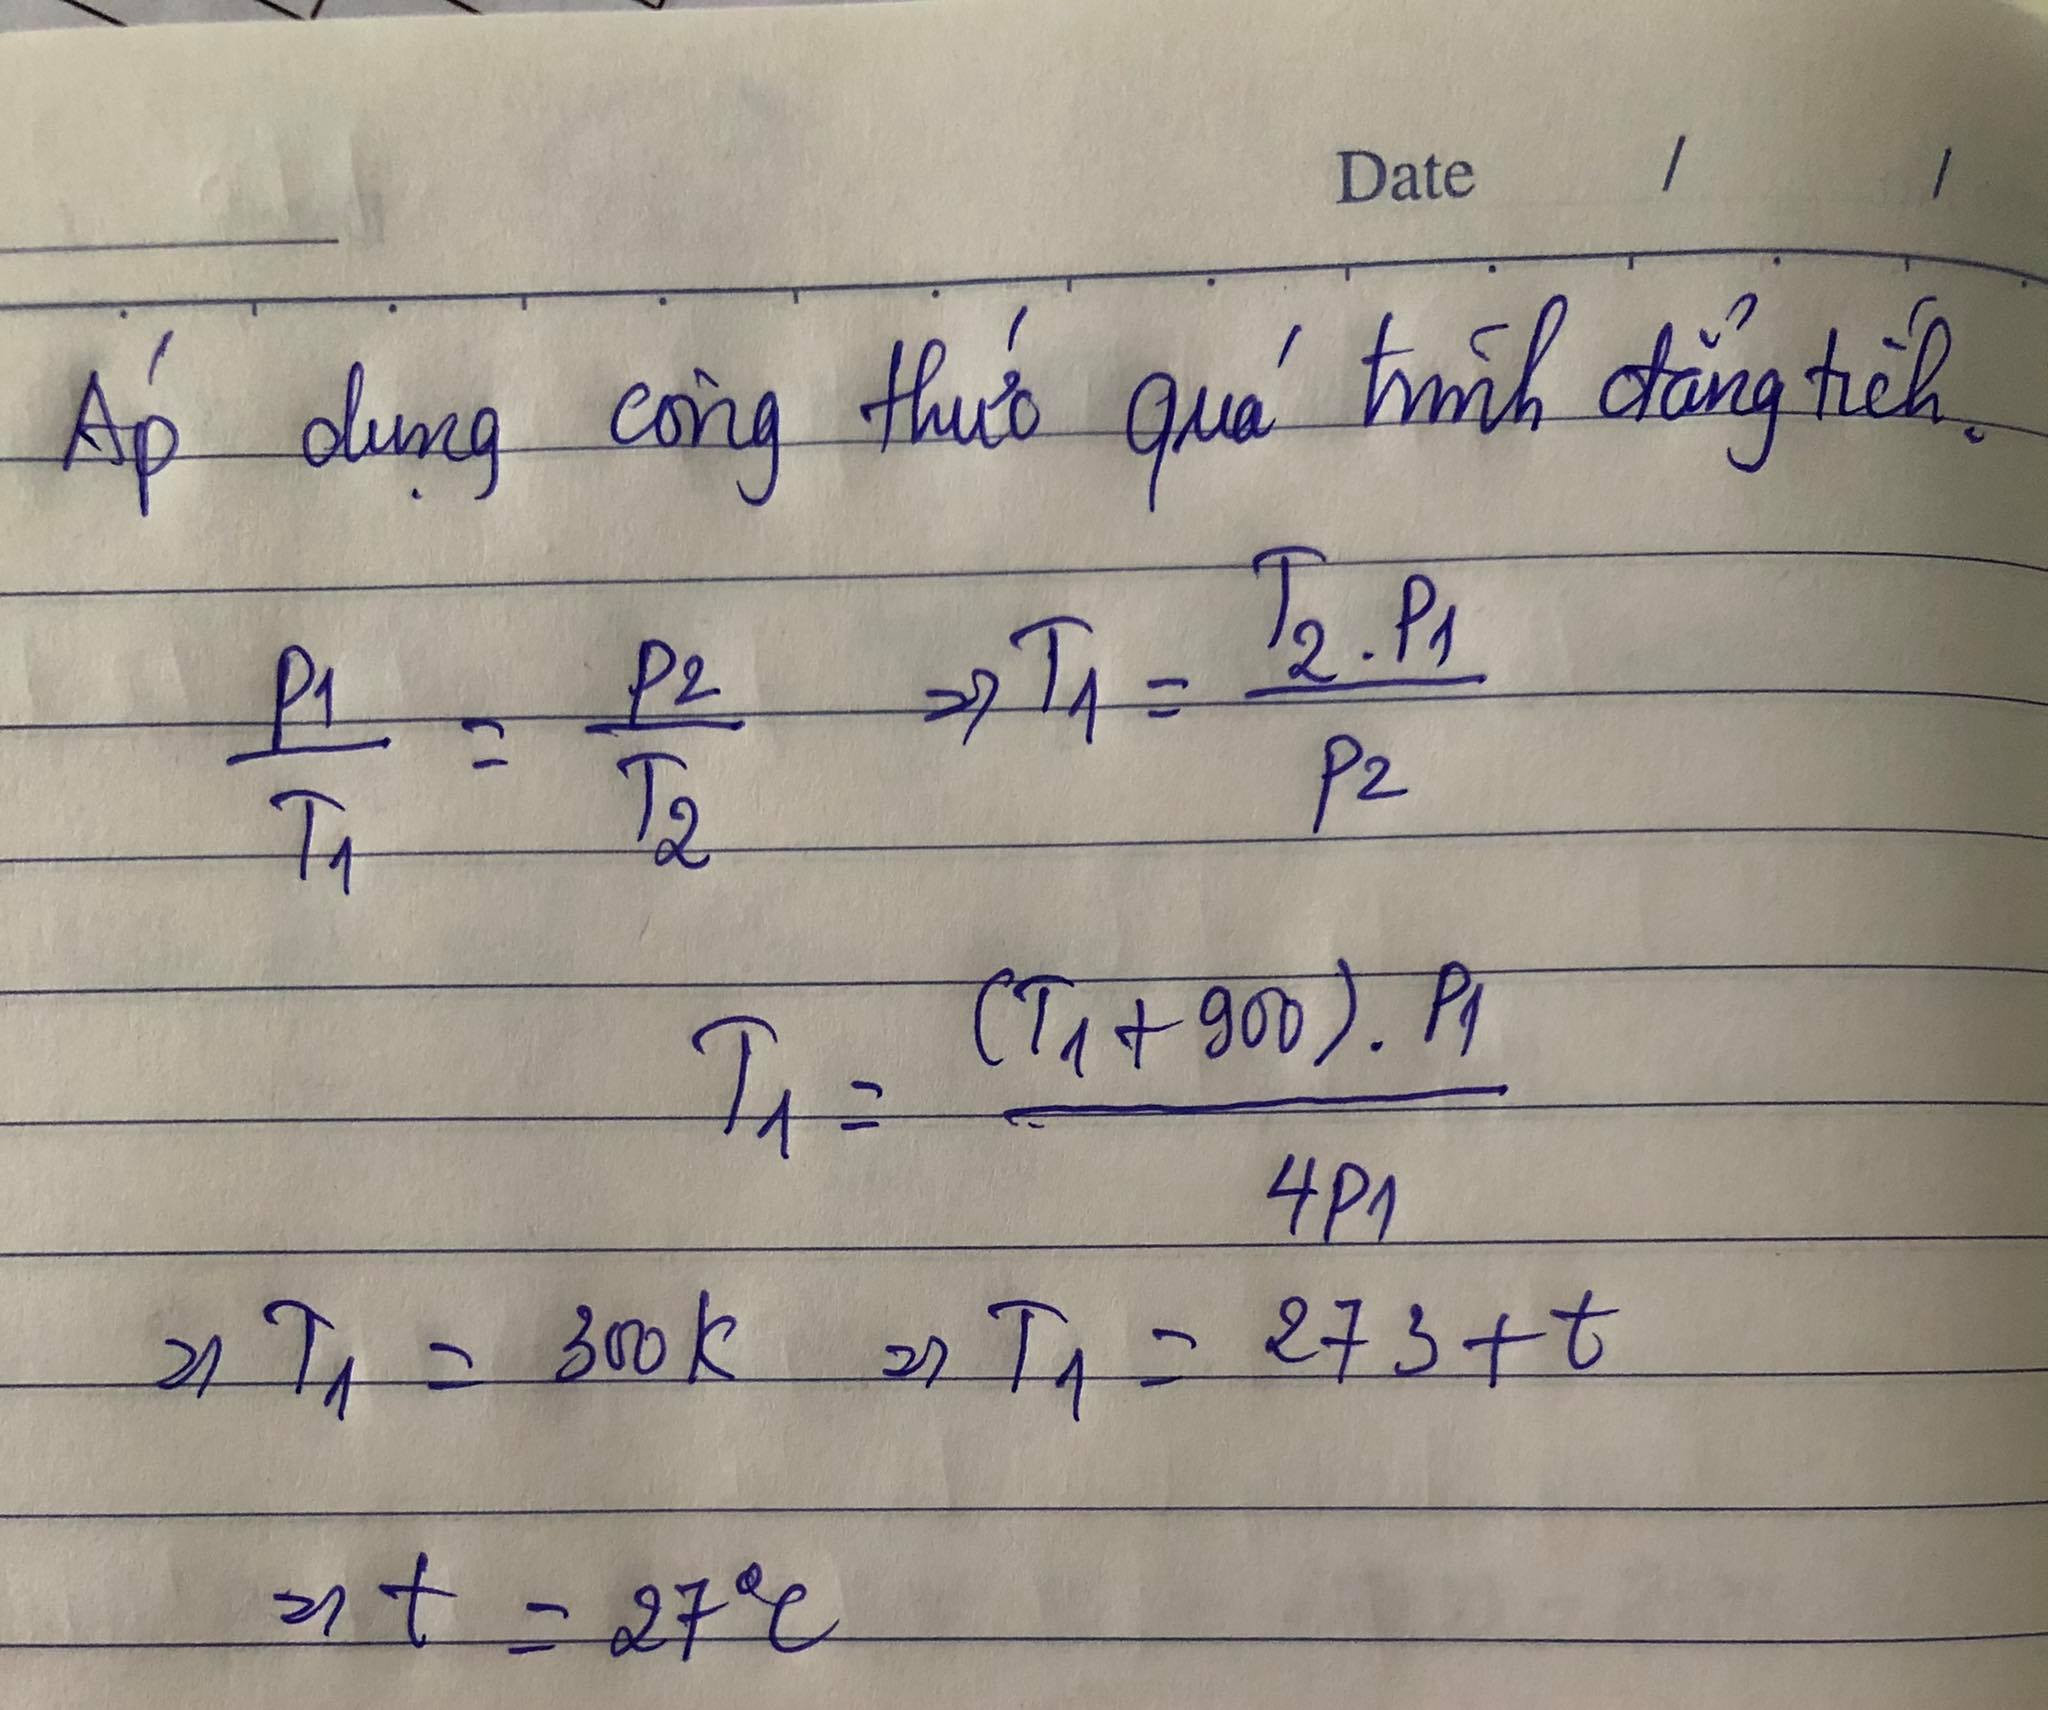 Date / /
Áp dụng công thức quá trình đẳng tích.
p1/T1 = p2/T2 => T1 = T2.p1/p2
T1 = (T1+900).p1/4p1
=> T1 = 300K => T1 = 273+t
=> t = 27°C